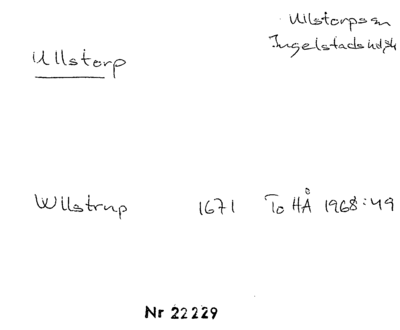 Ullstorps sn
Ingelstads hd, sk
Ullstorp
Wilstrup 1671 To HÅ 1968:49
Nr 22229